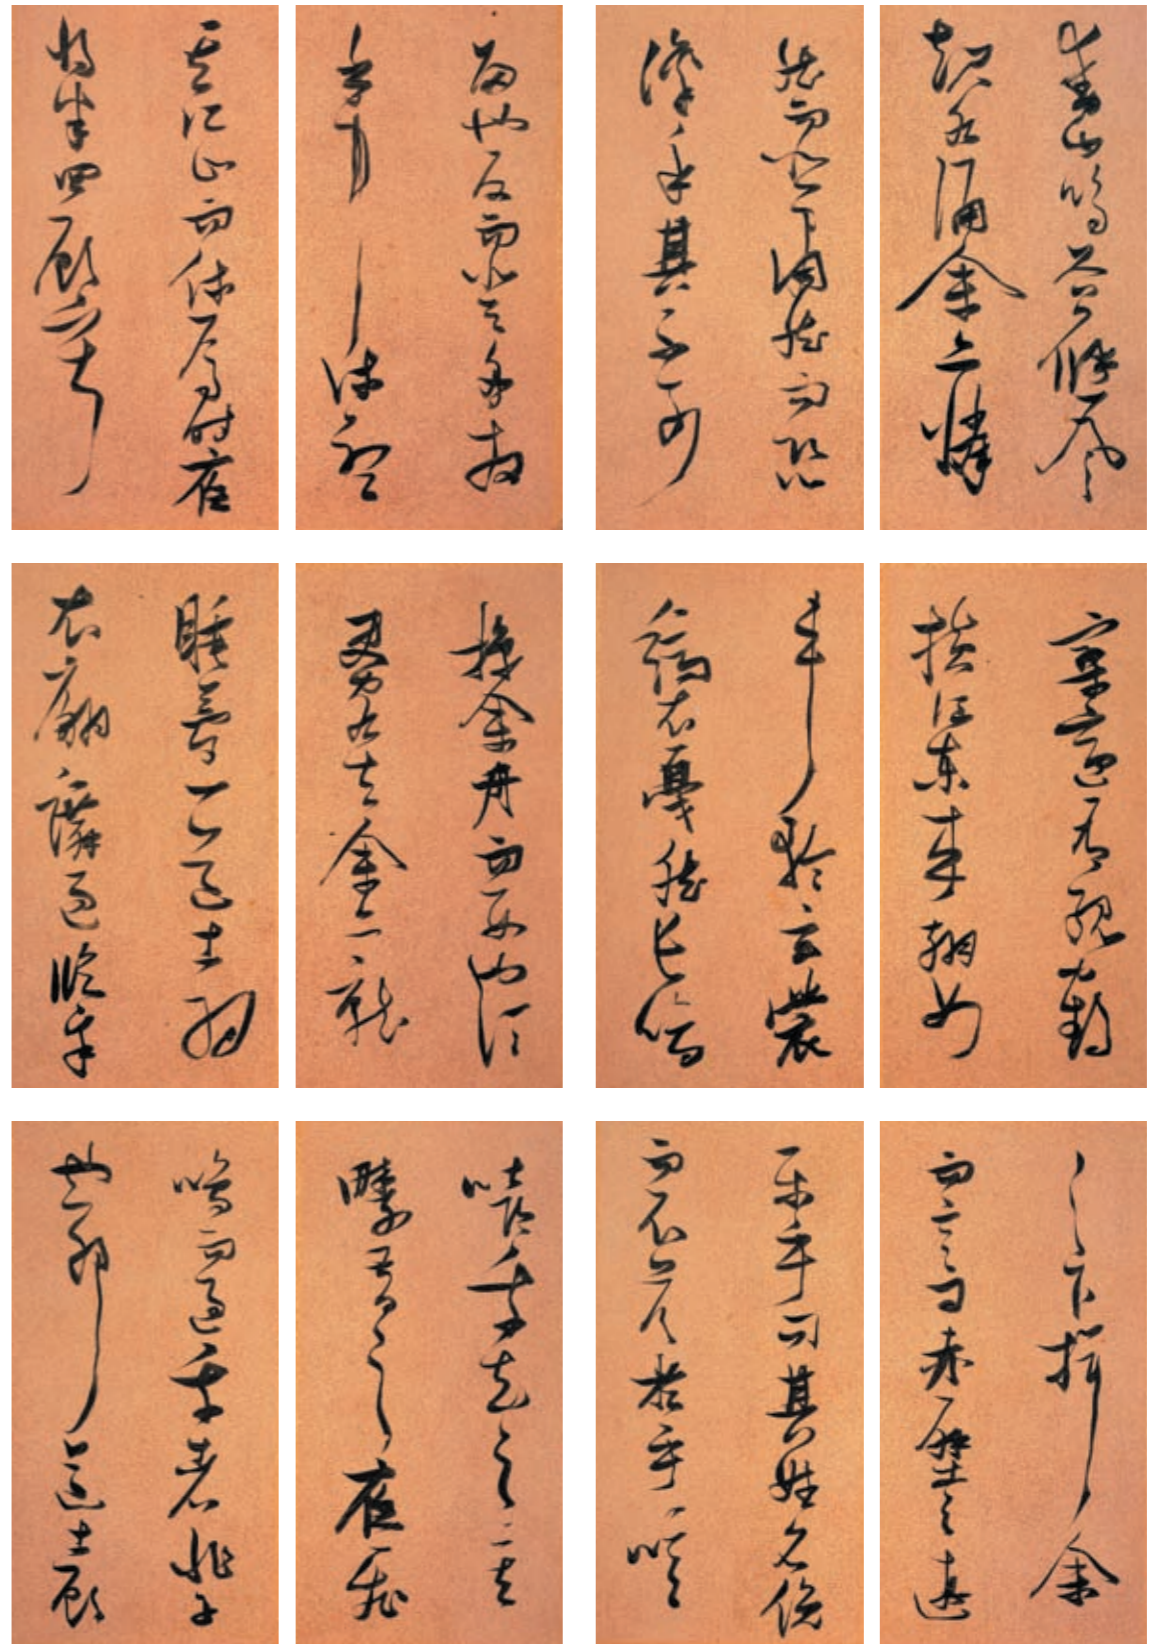 動山鳴谷應風
起水涌余亦悄
然而悲肅然而恐
凛乎其不可
留也反而登舟放
乎中流聽
其所止而休焉時夜
將半四顧寂
寥適有孤鶴
橫江東來翅如
車輪玄裳
縞衣戛然長鳴
掠余舟而西也須
臾客去余亦就
睡夢一道士羽
衣翩躚過臨皋
之下揖余
而言曰赤壁之遊
樂乎問其姓名俛
而不答嗚呼噫
嘻我知之矣
疇昔之夜飛
鳴而過我者非子
也耶道士顧